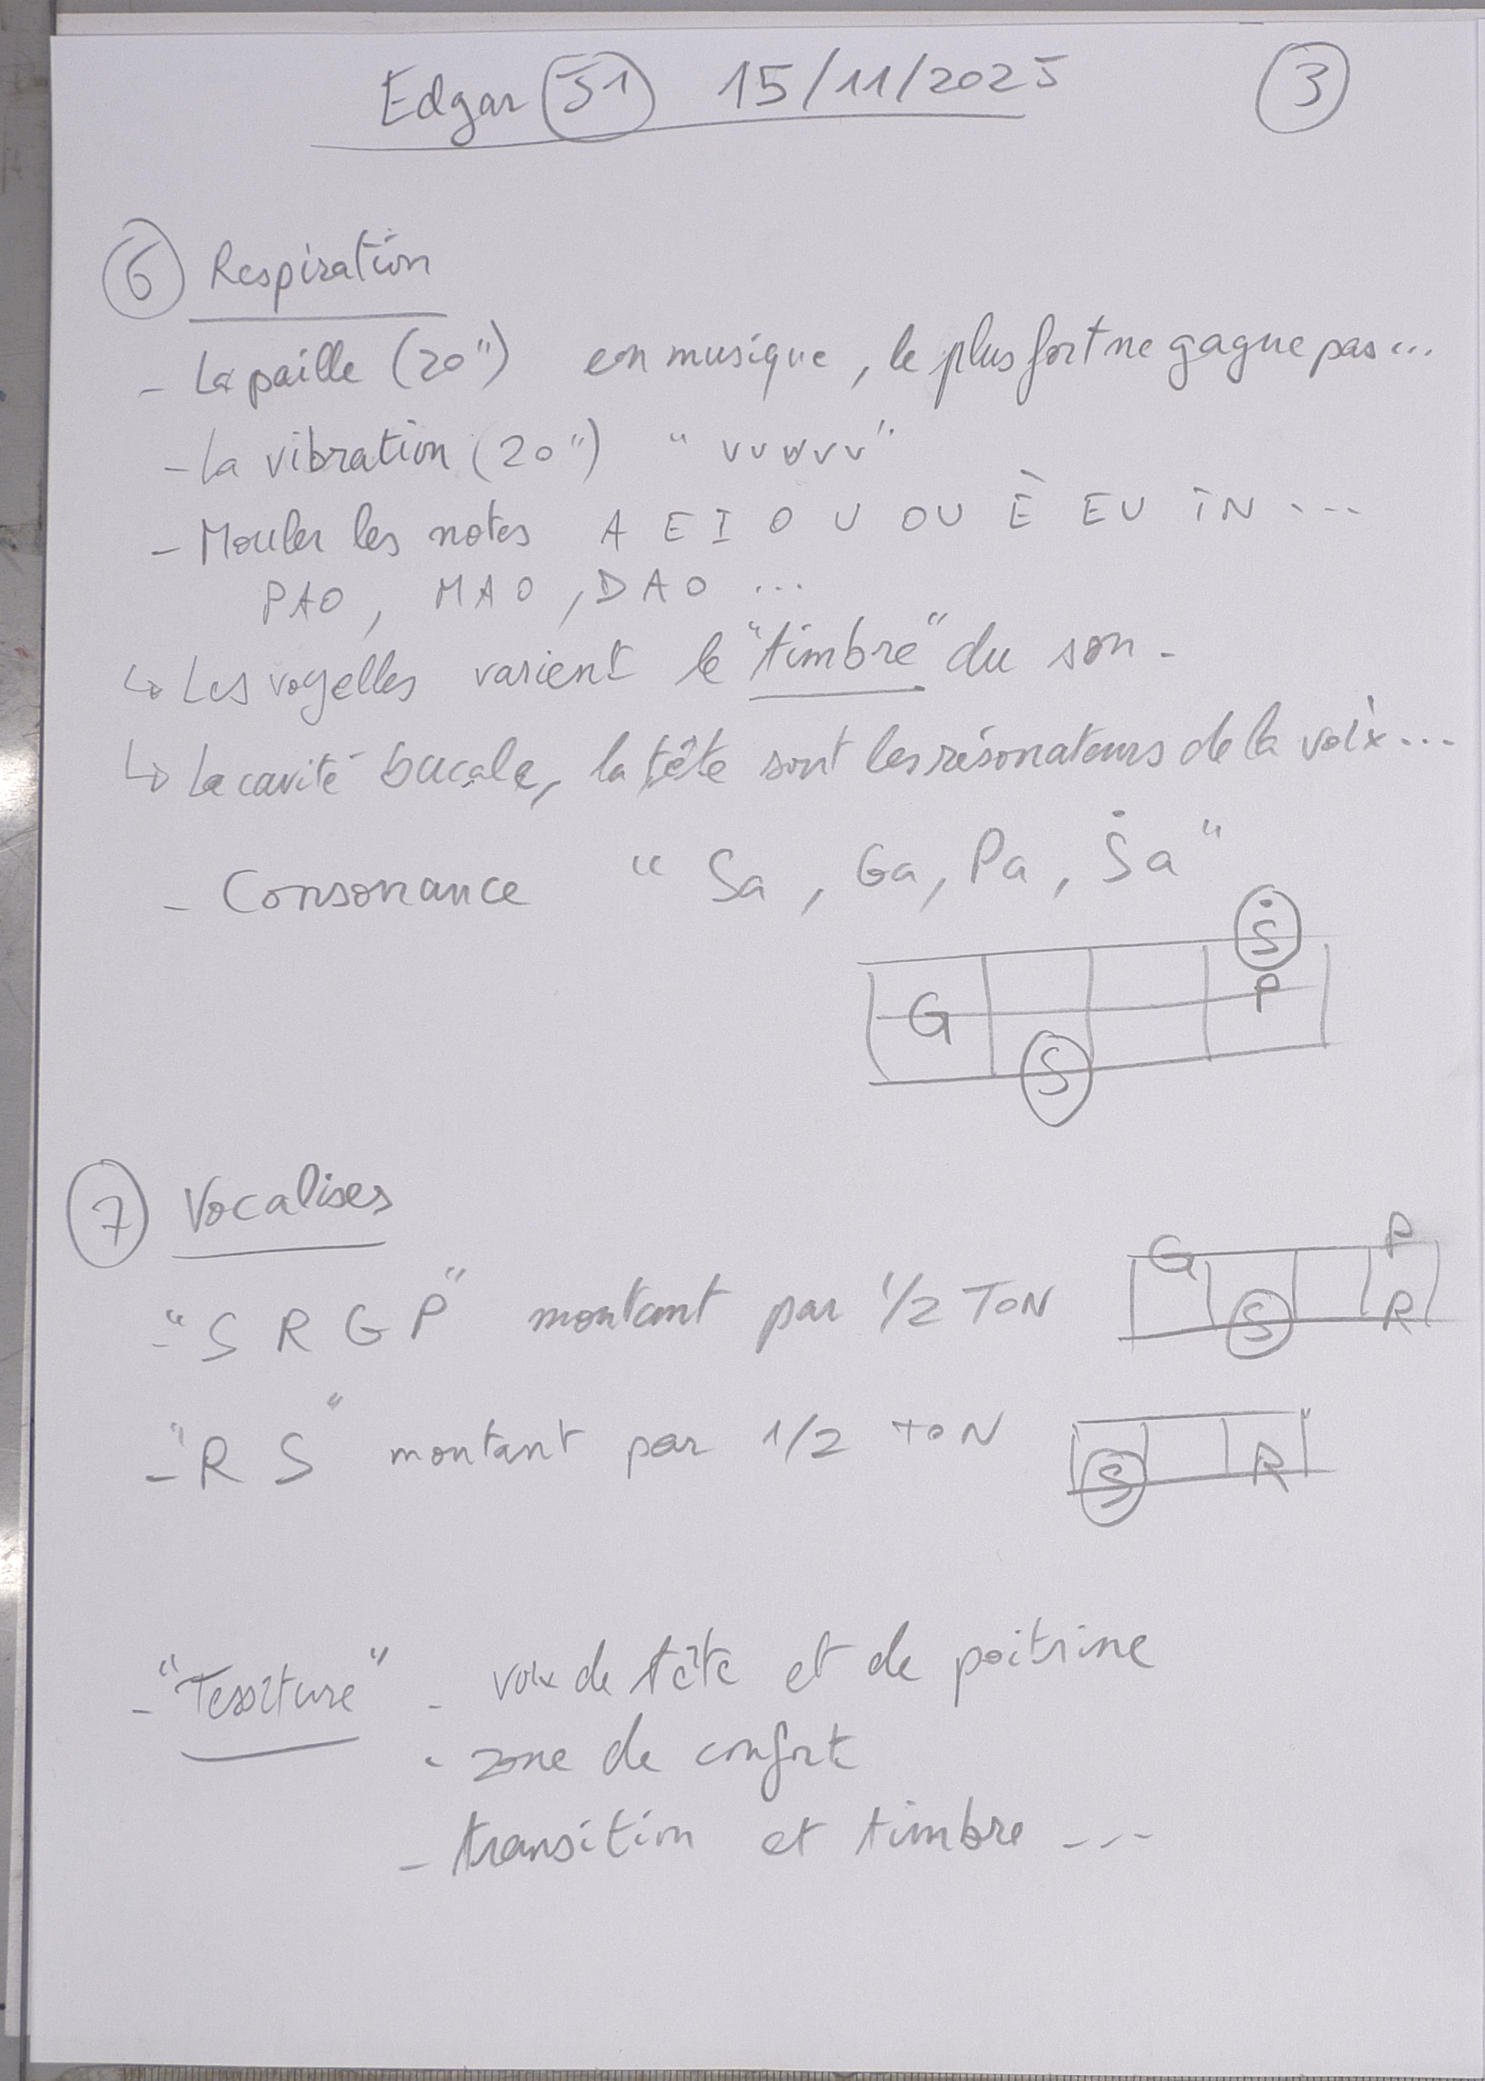 Edgar 51 15/11/2025 3
6 Respiration
- La paille (20") en musique, le plus fort ne gagne pas ...
- La vibration (20") "vvvvv"
- Mouler les notes A E I O U OU È EU IN ...
PAO, MAO, DAO ...
↳ Les voyelles varient le "timbre" du son.
↳ La cavité bucale, la tête sont les résonateurs de la voix...
- Consonance "Sa, Ga, Pa, Ṡa"
Ṡ
G P
S
7 Vocalises
G P
- "S R G P" montant par 1/2 TON
S R
- "R S" montant par 1/2 TON
S R
- "Tessiture" - voix de tête et de poitrine
- zone de confort
- transition et timbre ---